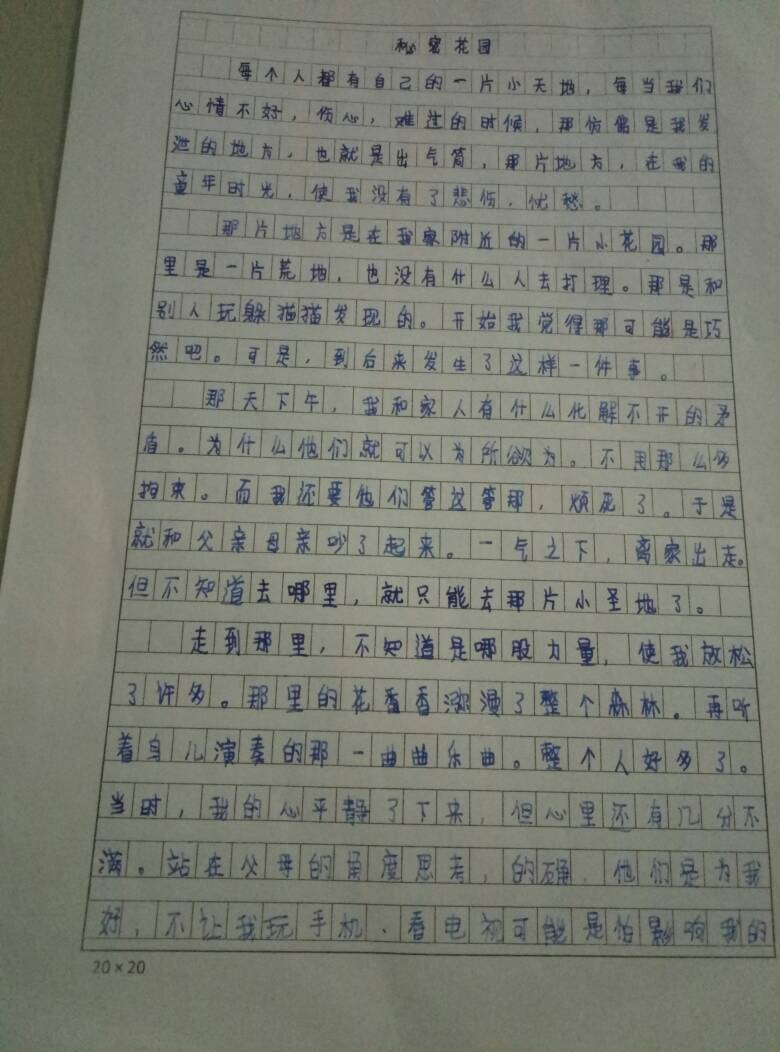 秘密花园
每个人都有自己的一片小天地，每当我们
心情不好，伤心，难过的时候，那仿佛是我发
泄的地方，也就是出气筒，那片地方，在我的
童年时光，使我没有了悲伤，忧愁。
那片地方是在我家附近的一片小花园。那
里是一片荒地，也没有什么人去打理。那是和
别人玩躲猫猫发现的。开始我觉得那可能是巧
然吧。可是，到后来发生了这样一件事。
那天下午，我和家人有什么化解不开的矛
盾。为什么他们就可以为所欲为。不用那么多
拘束。而我还要他们管这管那，烦死了。于是
就和父亲母亲吵了起来。一气之下，离家出走。
但不知道去哪里，就只能去那片小圣地了。
走到那里，不知道是哪股力量，使我放松
了许多。那里的花香香弥漫了整个森林。再听
着鸟儿演奏的那一曲曲乐曲。整个人好多了。
当时，我的心平静了下来，但心里还有几分不
满。站在父母的角度思考，的确，他们是为我
好，不让我玩手机、看电视可能是怕影响我的
20×20